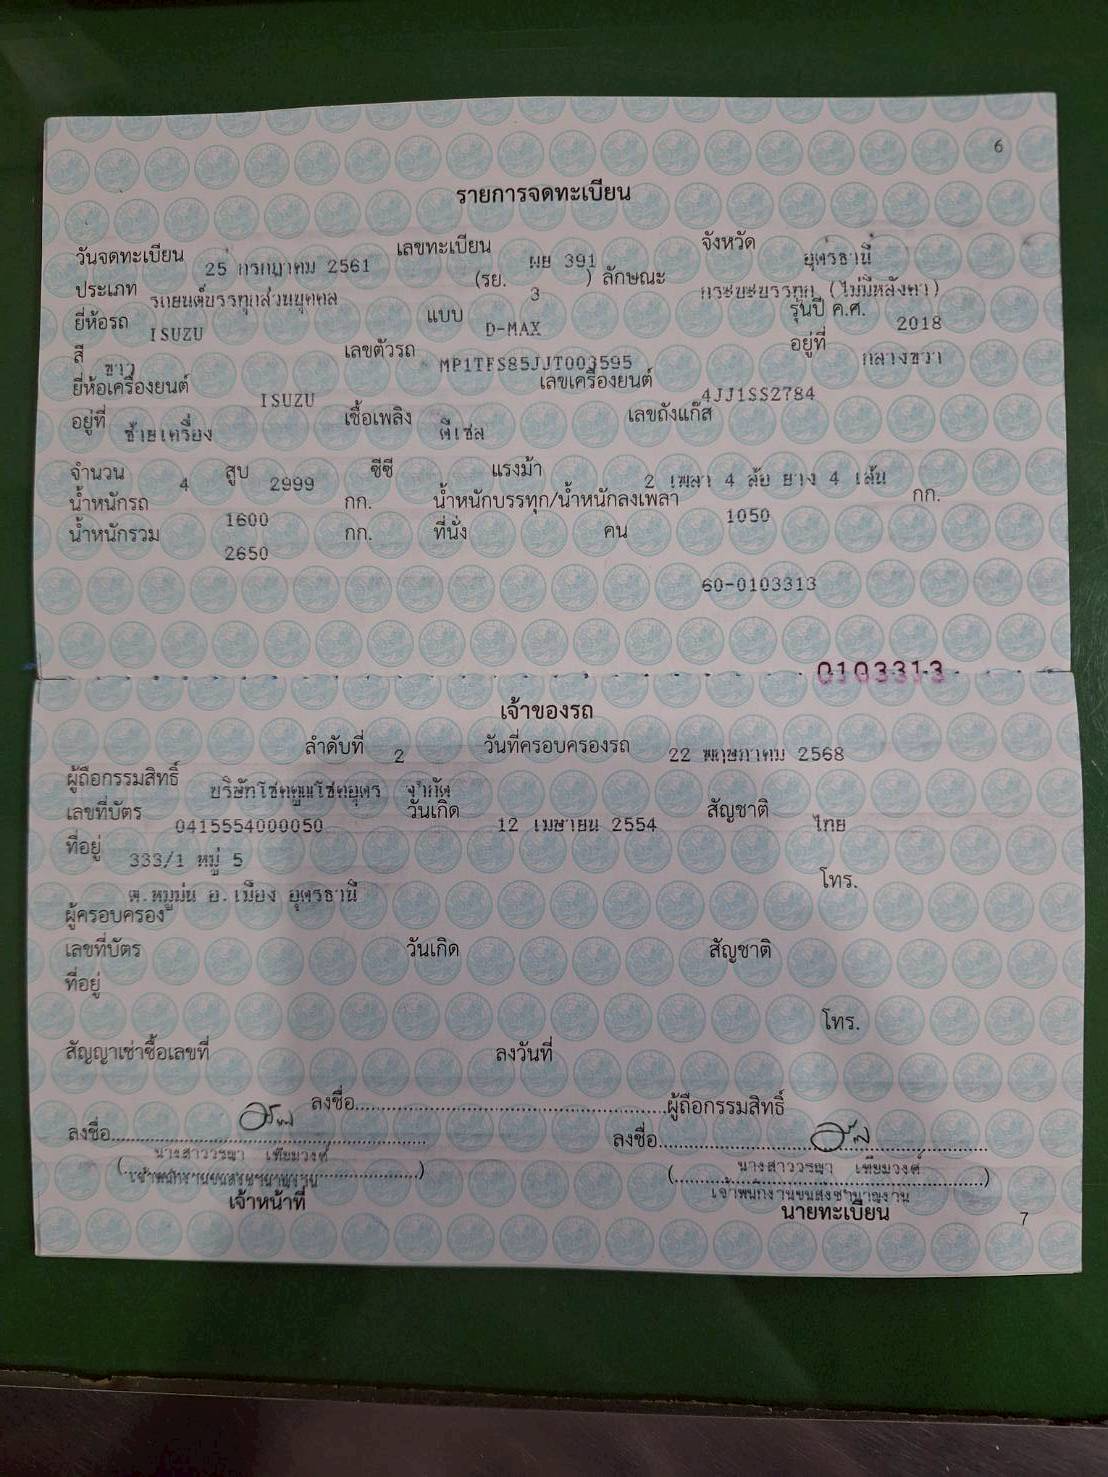 6
รายการจดทะเบียน
วันจดทะเบียน 25 กรกฎาคม 2561 เลขทะเบียน ผย 391 จังหวัด อุดรธานี
ประเภท รถยนต์บรรทุกส่วนบุคคล (รย. 3 ) ลักษณะ กระบะบรรทุก (ไม่มีหลังคา)
ยี่ห้อรถ ISUZU แบบ D-MAX รุ่นปี ค.ศ. 2018
สี ขาว เลขตัวรถ MP1TFS85JJT003595 อยู่ที่ กลางขวา
ยี่ห้อเครื่องยนต์ ISUZU เลขเครื่องยนต์ 4JJ1SS2784
อยู่ที่ ซ้ายเครื่อง เชื้อเพลิง ดีเซล เลขถังแก๊ส
จำนวน 4 สูบ 2999 ซีซี แรงม้า 2 เพลา 4 ล้อ ยาง 4 เส้น
น้ำหนักรถ 1600 กก. น้ำหนักบรรทุก/น้ำหนักลงเพลา 1050 กก.
น้ำหนักรวม 2650 กก. ที่นั่ง คน
60-0103313
0103313
เจ้าของรถ
ลำดับที่ 2 วันที่ครอบครองรถ 22 พฤษภาคม 2568
ผู้ถือกรรมสิทธิ์ บริษัทโชคคูณโชคอุดร จำกัด
เลขที่บัตร 0415554000050 วันเกิด 12 เมษายน 2554 สัญชาติ ไทย
ที่อยู่ 333/1 หมู่ 5
ต.หมูม่น อ.เมือง อุดรธานี โทร.
ผู้ครอบครอง
เลขที่บัตร วันเกิด สัญชาติ
ที่อยู่
โทร.
สัญญาเช่าซื้อเลขที่ ลงวันที่
ลงชื่อ ผู้ถือกรรมสิทธิ์
ลงชื่อ ลงชื่อ
(นางสาววรญา เทียมวงศ์) (นางสาววรญา เทียมวงศ์)
เจ้าพนักงานขนส่งชำนาญงาน เจ้าพนักงานขนส่งชำนาญงาน
เจ้าหน้าที่ นายทะเบียน
7